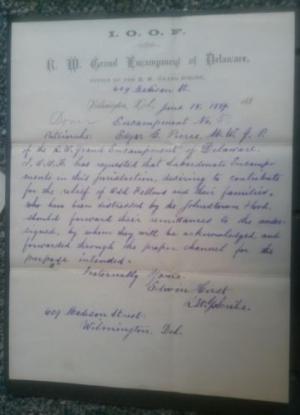 I. O. O. F.
R. W. Grand Encampment of Delaware,
OFFICE OF THE R. W. GRAND SCRIBE,
609 Madison St.
Wilmington, Del., June 18, 1889. 188
Dover Encampment No. 5
Patriarchs: Edgar C. Pierce, M. W. G. P.
of the R. W. Grand Encampment of Delaware.
I. O. O. F. has requested that Subordinate Encamp-
ments in this jurisdiction, desiring to contribute
for the relief of Odd Fellows and their families,
who have been distressed by the Johnstown flood,
should forward their remittances to the under-
signed, by whom they will be acknowledged and
forwarded through the proper channel for the
purpose intended.
Fraternally Yours.
Edwin Hirst
R. W. G. Scribe.
609 Madison Street.
Wilmington, Del.